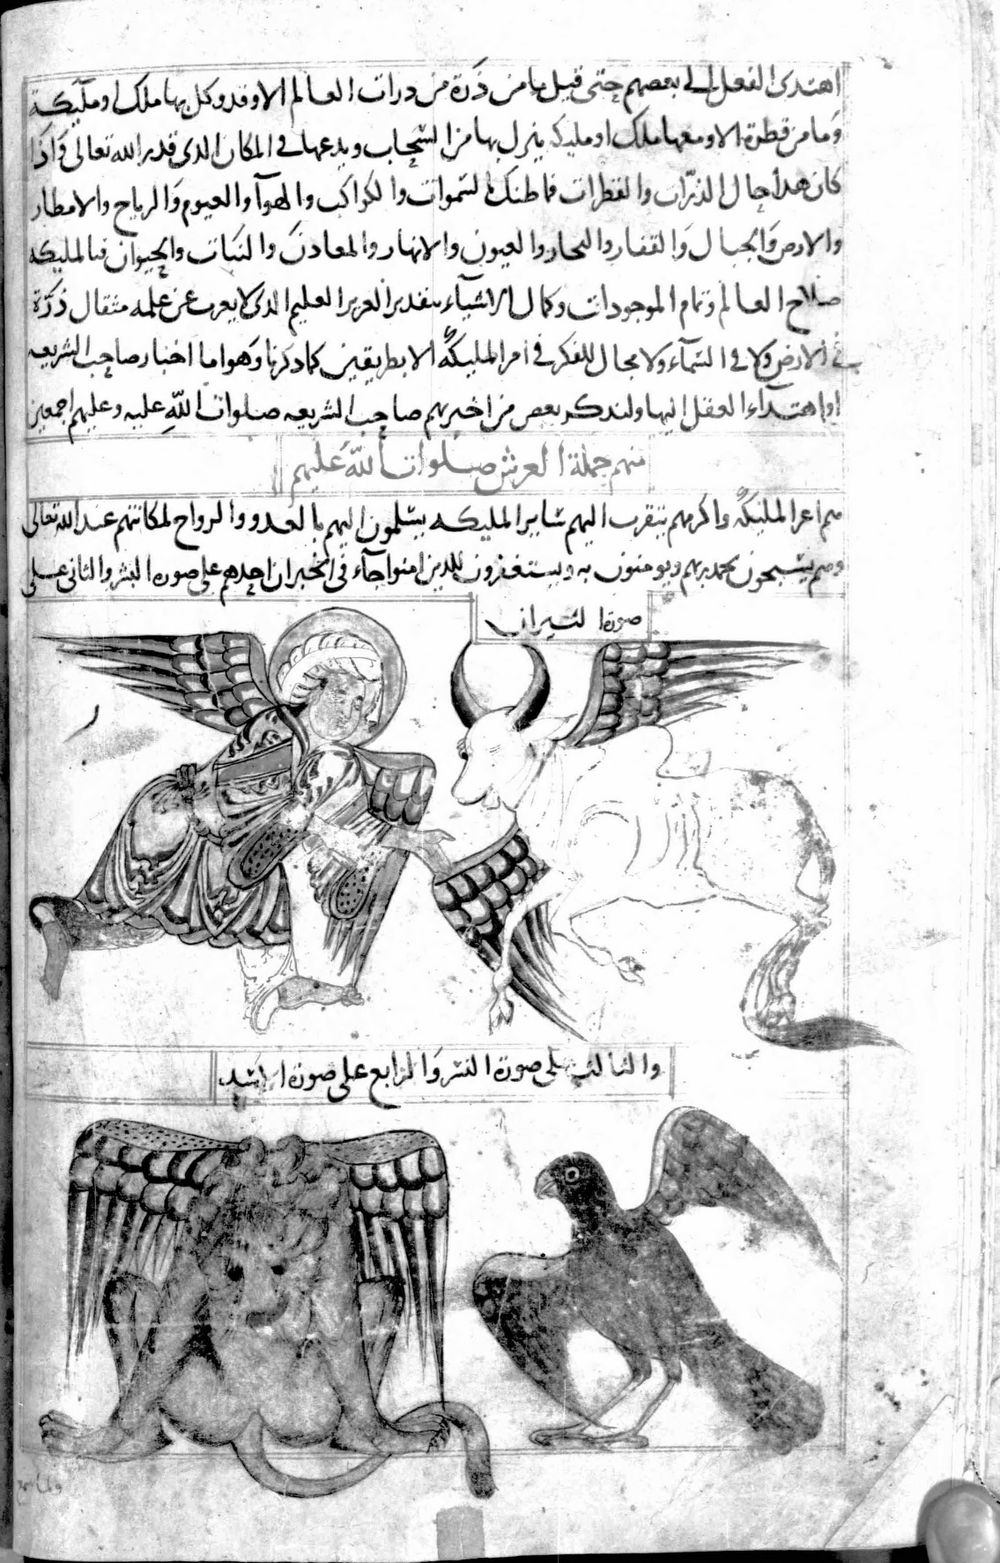 اهتدى العقل الى بعضهم حتى قيل ما من ذرة من درات العالم الا وقد وكل بها ملك او مليكة
وما من قطرة الا ومعها ملك او مليكه ينزل بها من السحاب ويدعها فى المكان الدى قدر الله تعالى واذا
كان هدا حال الذرّات والقطرات فما طنك بالسموات والكواكب والهوآ والعيوم والرياح والامطار
والارض والجبال والقفار والبحار والعيون والانهار والمعادن والنبات والحيوان فبالمليكه
صلاح العالم وتمام الموجودات وكمال الاشيآء بتقدير العزير العليم الدى لا يعرب عن علمه مثقال ذرة
فى الارض ولا فى السمآء ولا مجال للفكر فى امر المليكة الا بطريقين كما دكرنا وهو اما اخبار صاحب الشريعه
او اهتدآء العقل اليها ولندكر بعض من اخبر بهم صاحب الشريعه صلوات الله عليه وعليهم اجمعين
منهم حملة العرش صلوات الله عليهم
هم اعز المليكة واكرمهم يتقرب اليهم ساير المليكه يسلمون اليهم بالغدو والرواح لمكانتهم عند الله تعالى
وهم يسبحون بحمد ربهم ويومنون به ويستغفرون للدين امنوا جآء فى الخبر ان احدهم على صورة البشر والثانى على
صورة الثيران
والثالث على صورة النسر والرابع على صورة الاسد